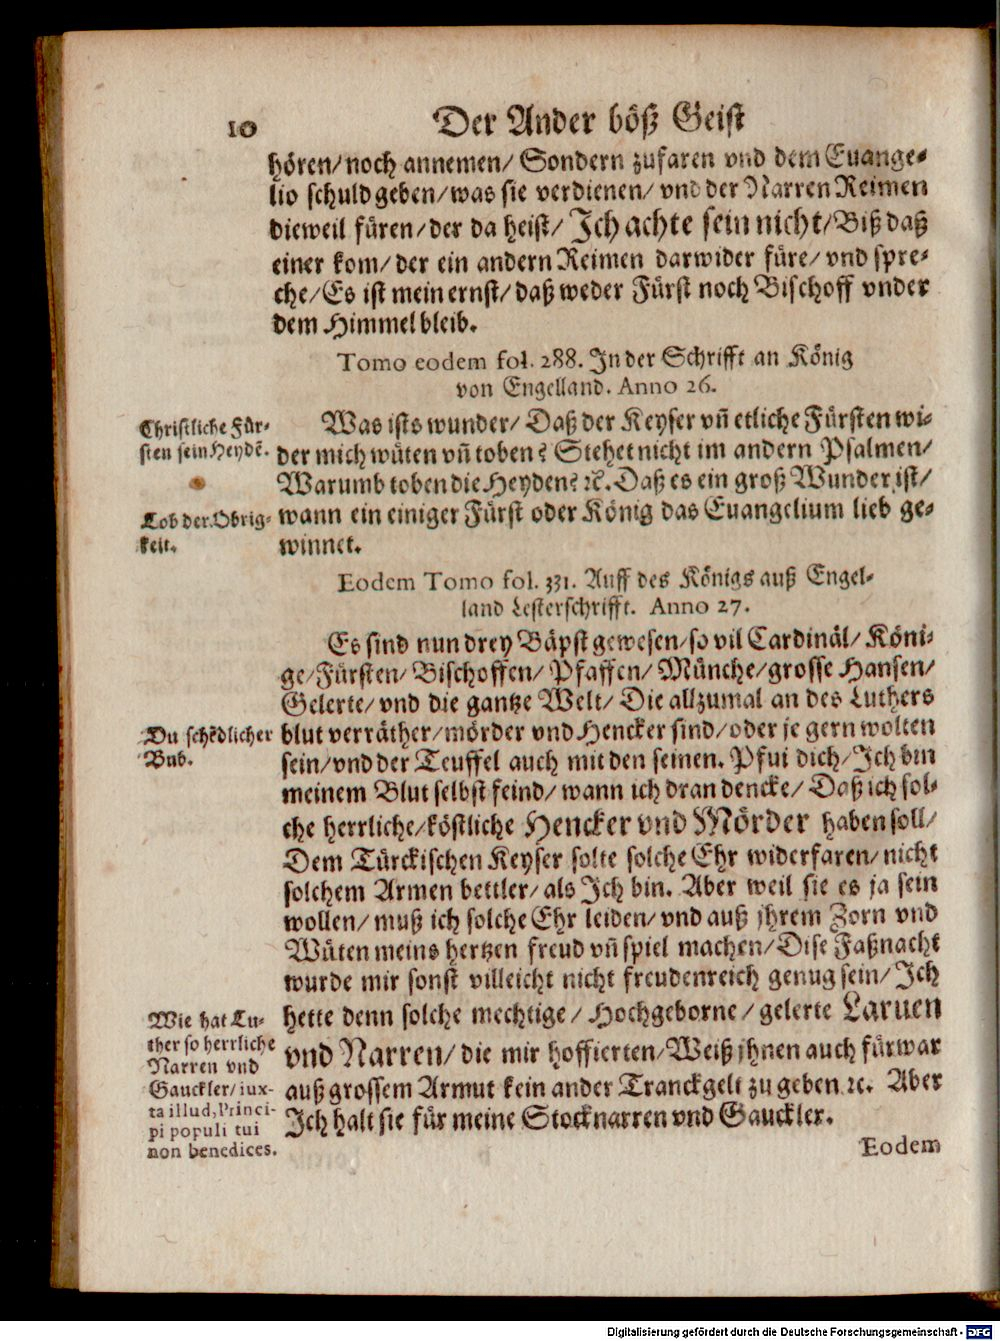 10 Der Ander böß Geist
hören/ noch annemen/ Sondern zufaren vnd dem Euange-
lio schuld geben/ was sie verdienen/ vnd der Narren Reimen
dieweil füren/ der da heist/ Ich achte sein nicht/ Biß daß
einer kom/ der ein andern Reimen darwider füre/ vnd spre-
che/ Es ist mein ernst/ daß weder Fürst noch Bischoff vnder
dem Himmel bleib.
Tomo eodem fol. 288. In der Schrifft an König
von Engelland. Anno 26.
Christliche Für-
sten sein Heydē.
Was ists wunder/ Daß der Keyser vñ etliche Fürsten wi-
der mich wüten vñ toben? Stehet nicht im andern Psalmen/
Warumb toben die Heyden? ꝛc. Daß es ein groß Wunder ist/
Lob der Obrig-
keit.
wann ein einiger Fürst oder König das Euangelium lieb ge-
winnet.
Eodem Tomo fol. 331. Auff des Königs auß Engel-
land Lesterschrifft. Anno 27.
Es sind nun drey Bäpst gewesen/ so vil Cardinäl/ Köni-
ge/ Fürsten/ Bischoffen/ Pfaffen/ Münche/ grosse Hansen/
Gelerte/ vnd die gantze Welt/ Die allzumal an des Luthers
Du schēdlicher
Bub.
blut verräther/ mörder vnd Hencker sind/ oder je gern wolten
sein/ vnd der Teuffel auch mit den seinen. Pfui dich/ Ich bin
meinem Blut selbst feind/ wann ich dran dencke/ Daß ich sol-
che herrliche/ köstliche Hencker vnd Mörder haben soll/
Dem Türckischen Keyser solte solche Ehr widerfaren/ nicht
solchem Armen bettler/ als Ich bin. Aber weil sie es ja sein
wollen/ muß ich solche Ehr leiden/ vnd auß jhrem Zorn vnd
Wüten meins hertzen freud vñ spiel machen/ Dise Faßnacht
wurde mir sonst villeicht nicht freudenreich genug sein/ Ich
Wie hat Lu-
ther so herrliche
Narren vnd
Gauckler/ iux-
ta illud, Princi-
pi populi tui
non benedices.
hette denn solche mechtige/ Hochgeborne/ gelerte Laruen
vnd Narren/ die mir hoffierten/ Weiß jhnen auch fürwar
auß grossem Armut kein ander Tranckgelt zu geben ꝛc. Aber
Ich halt sie für meine Stocknarren vnd Gauckler.
Eodem
Digitalisierung gefördert durch die Deutsche Forschungsgemeinschaft - DFG